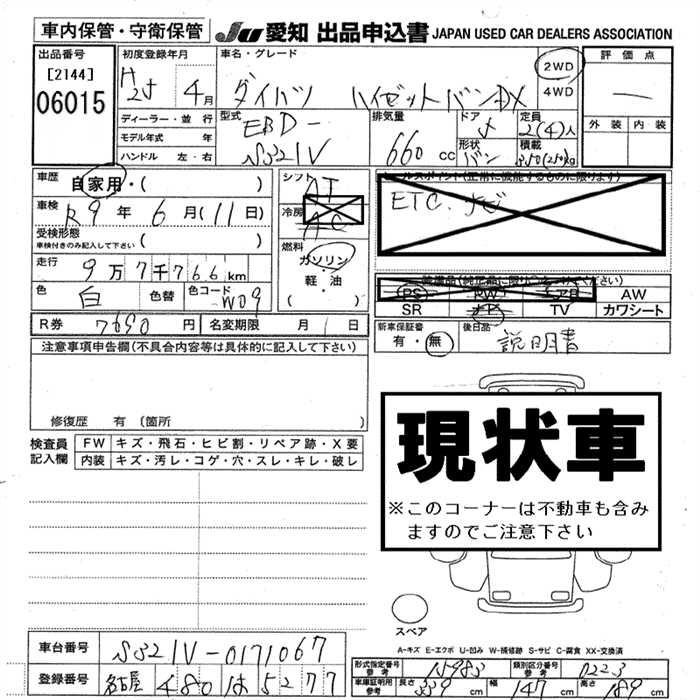 車内保管・守衛保管 JU 愛知 出品申込書 JAPAN USED CAR DEALERS ASSOCIATION
出品番号 初度登録年月 車名・グレード 2WD 4WD 評価点
[2144]
06015
H25 4月 ダイハツ ハイゼットバンDX
ディーラー・並行 型式 EBD-S321V 排気量 660cc ドア 5 定員 2(4)人
モデル年式 年
ハンドル 左・右 形状 バン 積載 350(250)kg
外装 内装
車歴 自家用・( ) シフト AT
セールスポイント(正常に機能するものに限ります)
車検 R9年6月(11日) 冷房 AC ETC.ナビ
受検形態
車検付きのみ記入して下さい ( )
燃料 ガソリン・軽・油 ( )
走行 9万7千766km
装備品(純正品に限り○をつけてください)
PS PW エアB AW
SR ナビ TV カワシート
色 白 色替 色コード W09
R券 7690円 名変期限 月 日
新車保証書 有・無 後日品 説明書
注意事項申告欄(不具合内容等は具体的に記入して下さい)
修復歴 有 (箇所 )
検査員記入欄 FW キズ・飛石・ヒビ割・リペア跡・X要
内装 キズ・汚レ・コゲ・穴・スレ・キレ・破レ
現状車
※このコーナーは不動車も含み
ますのでご注意下さい
スペア
A-キズ E-エクボ U-凹み W-補修跡 S-サビ C-腐食 XX-交換済
車台番号 S321V-0171067
登録番号 名古屋 480 は 5277
形式指定番号 参考 15983 類別区分番号 参考 0223
車庫証明用 参考 長さ 339cm 幅 147cm 高さ 189cm